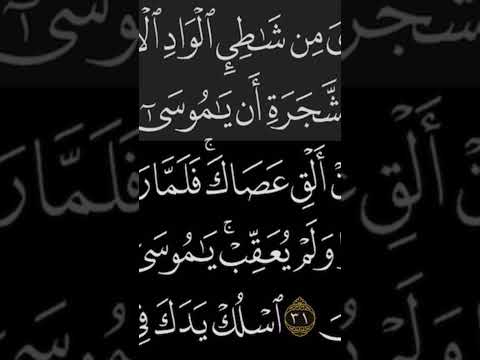 مِن شَٰطِئِ ٱلْوَادِ
شَّجَرَةِ أَن يَٰمُوسَىٰٓ
أَلْقِ عَصَاكَ ۚ فَلَمَّا رَ
وَلَمْ يُعَقِّبْ ۚ يَٰمُوسَىٰٓ
٣١ ٱسْلُكْ يَدَكَ فِى